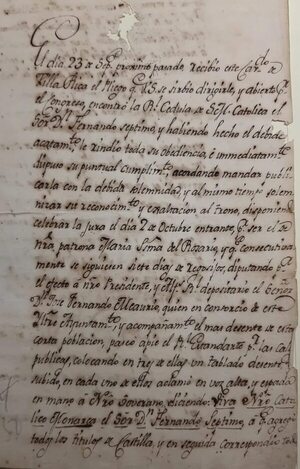 El dia 23 de Sbe. proximo pasado, recibió este Cav.do
Villa Rica el Pliego q.e V.S. se sirbio dirigirle, y abierto p.r
el Congreso, encontró la R.l Cedula de S.M. Catolica el
Sor. Dn. Fernando septimo, y habiendo hecho el debido
acatam.to le rindio toda su obediencia, é immediatam.te
dispuso su puntual cumplim.to acordando mandar publi-
carla con la debida solemnidad, y al mismo tiempo solem-
nizar su reconocim.to y exaltacion al trono, disponiendo
celebrar la Jura el dia 2 de Octubre entrante, p.r ser el de
nra. patrona Maria Sma. del Rosario, y q.e consecutiva-
mente se siguiesen siete dias de regosijos, diputando p.a
el efecto á nro. Presidente, y Alf.z R.l depositario el Señor
D.n Jose Fernando Alcauriu, quien en consorcio de este
Iltre. Ayuntam.to, y acompañam.to el mas desente de esta
corta poblacion, paseó á pie el R.l Estandarte p.r las calles
publicas, colocando en tres de ellas un tablado desente
subido, en cada uno de ellos aclamó en voz alta, y espada
en mano á Nro. Soverano, diciendo: Viva Nro. Cato-
lico Monarca el Sor. Dn. Fernando Septimo, á q.e agregó
todos los titulos de Castilla, y en seguida correspondió todo